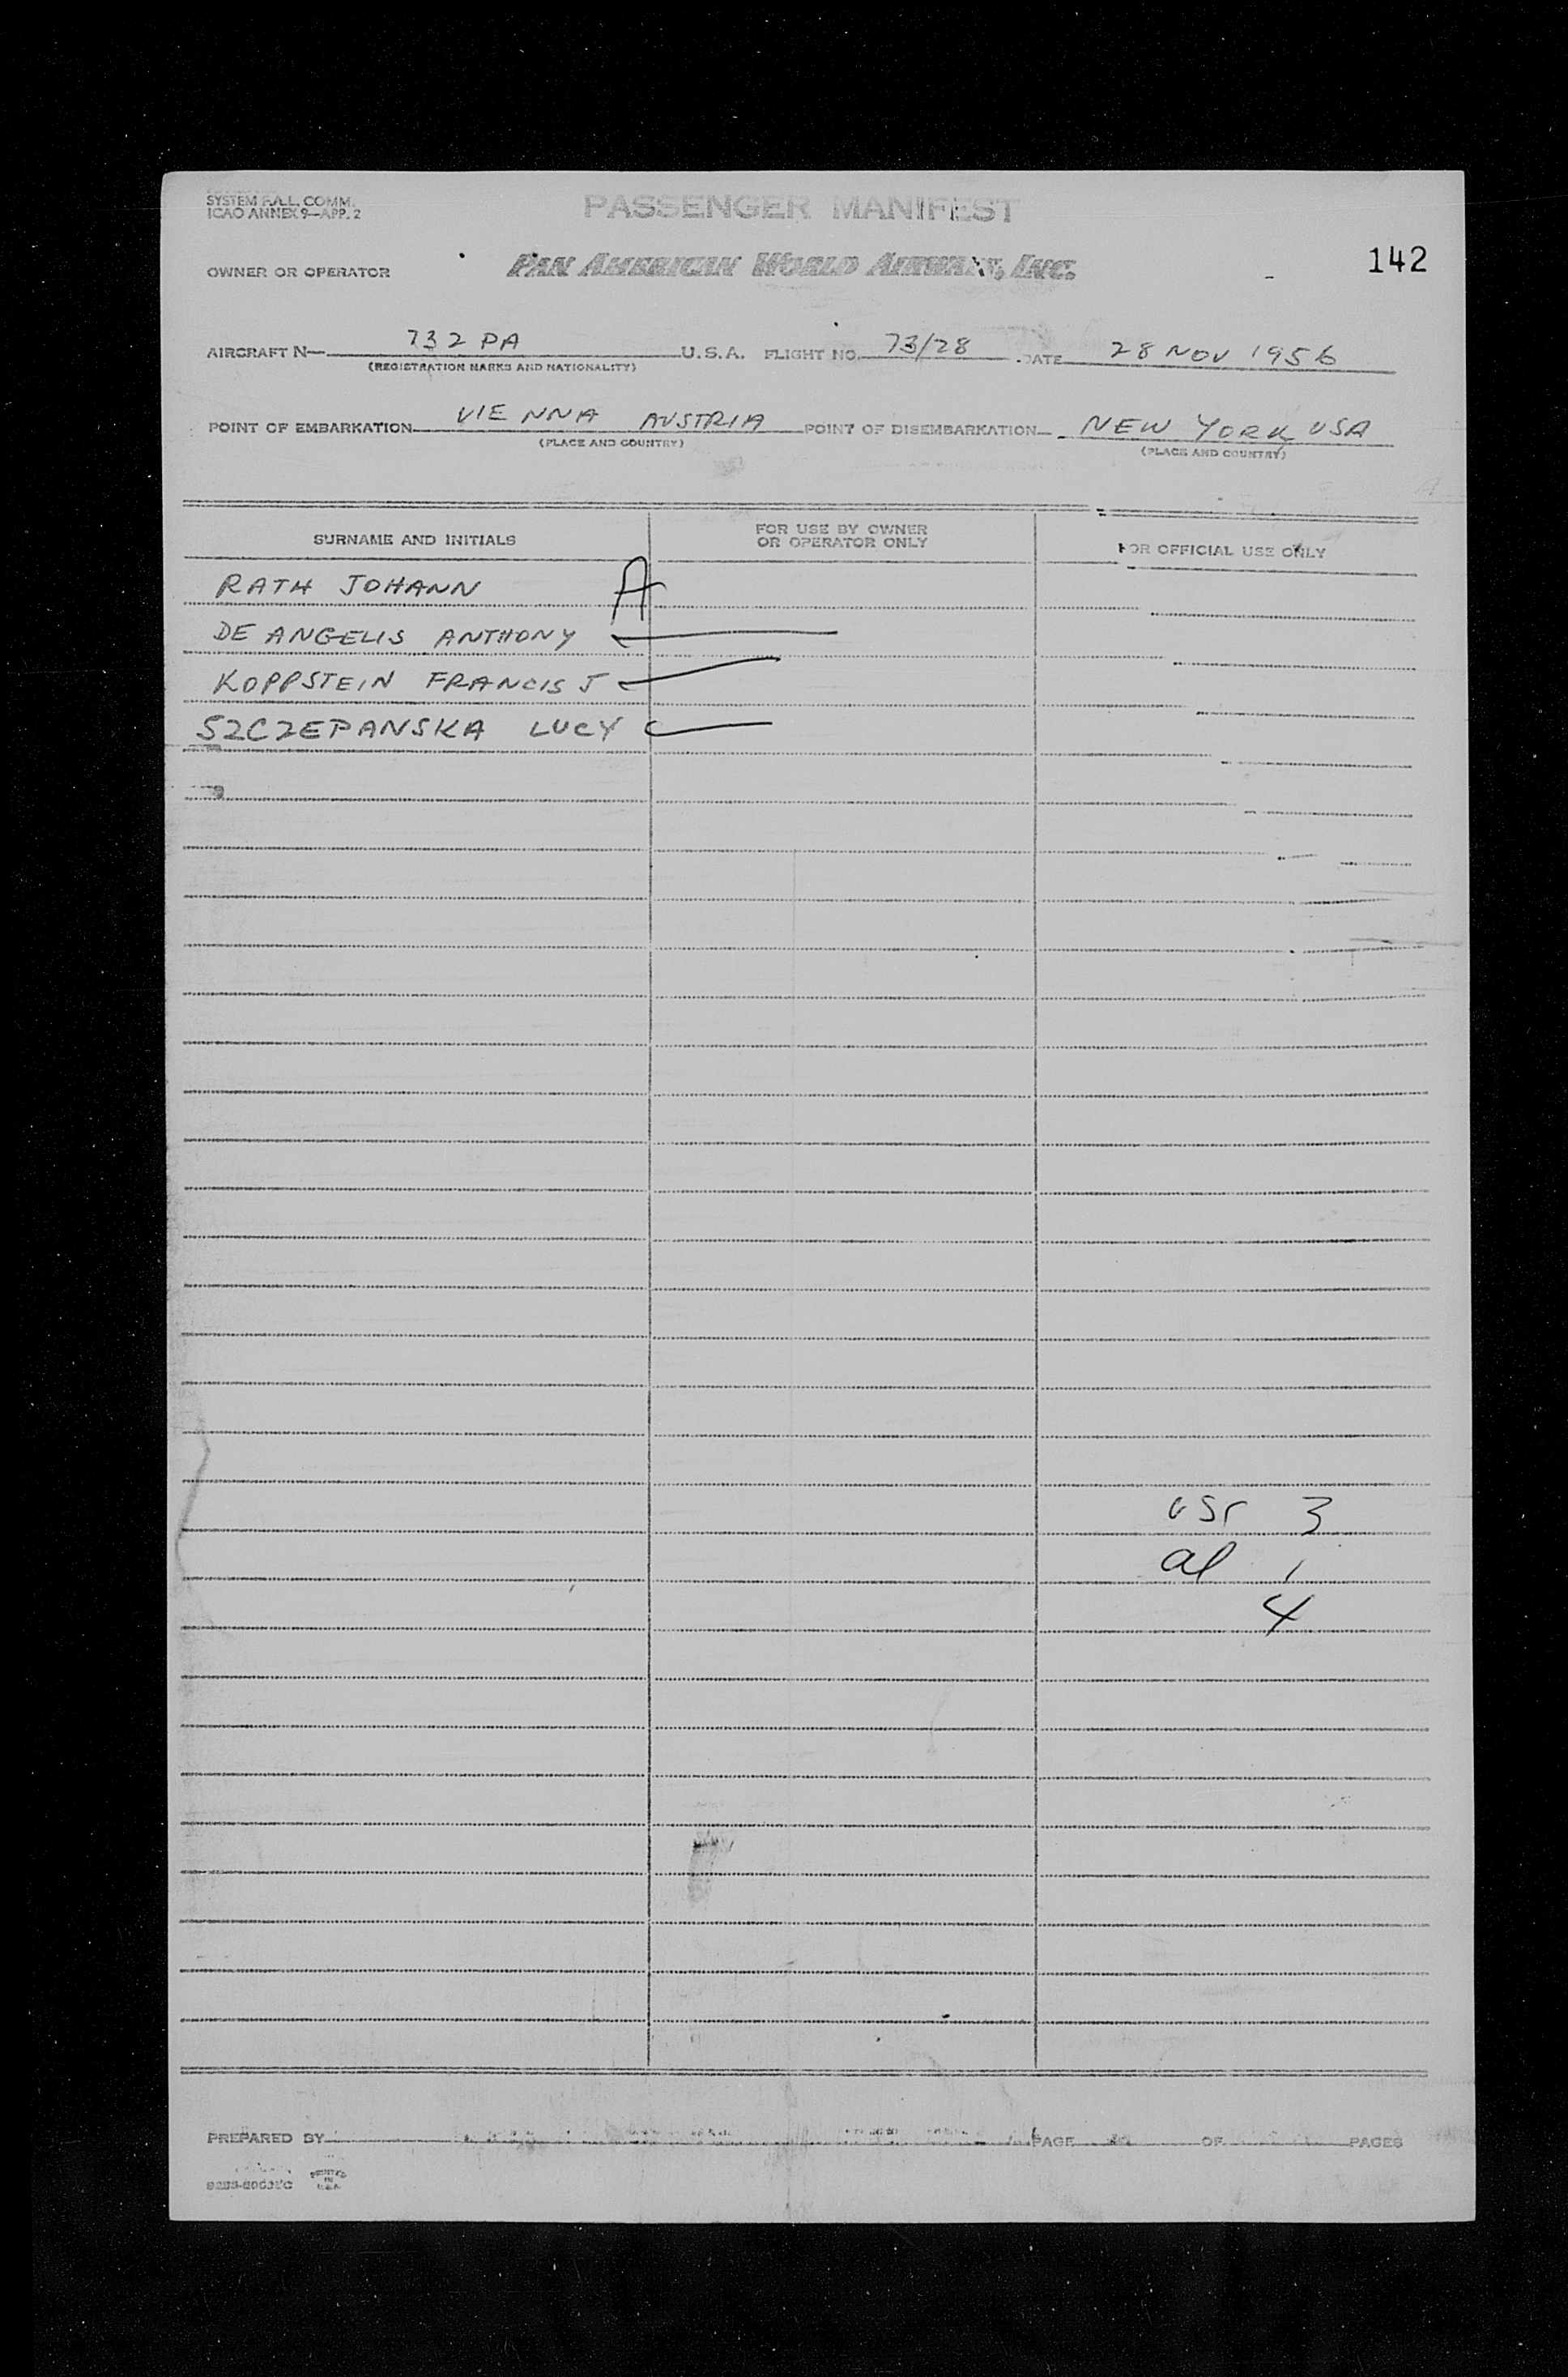 SYSTEM F.A.L. COMM.
ICAO ANNEX 9—APP. 2
PASSENGER MANIFEST
OWNER OR OPERATOR PAN AMERICAN WORLD AIRWAYS, INC. 142
AIRCRAFT N— 732 PA U.S.A. FLIGHT NO. 73/28 DATE 28 NOV 1956
(REGISTRATION MARKS AND NATIONALITY)
POINT OF EMBARKATION VIENNA AUSTRIA POINT OF DISEMBARKATION NEW YORK, USA
(PLACE AND COUNTRY) (PLACE AND COUNTRY)
SURNAME AND INITIALS FOR USE BY OWNER OR OPERATOR ONLY FOR OFFICIAL USE ONLY
RATH JOHANN A
DE ANGELIS ANTHONY
KOPPSTEIN FRANCIS J
SZCZEPANSKA LUCY
3
al 1
4
PREPARED BY PAGE OF PAGES
PRINTED IN U.S.A.